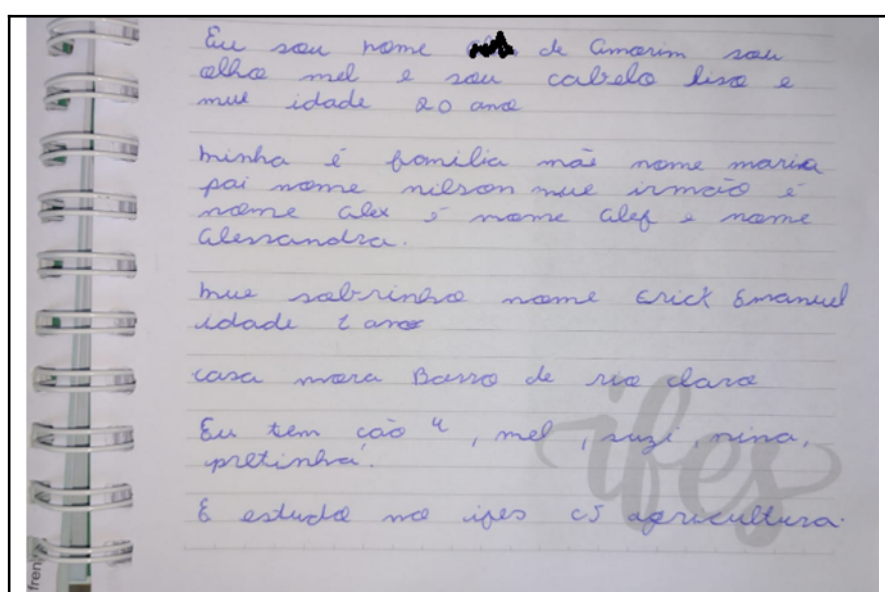 Eu sou nome de Amorim sou
olho mel e sou cabelo liso e
mue idade 20 ano
minha é família mãe nome maria
pai nome nilson mue irmão é
nome alex é nome alef e nome
alessandra.
mue sobrinho nome Erick Emanuel
idade 1 ano
casa mora Barro de rio claro
Eu tem cão 4, mel, suzi, nina,
pretinha.
E estudo no ifes CS agricultura.
ifes
fren